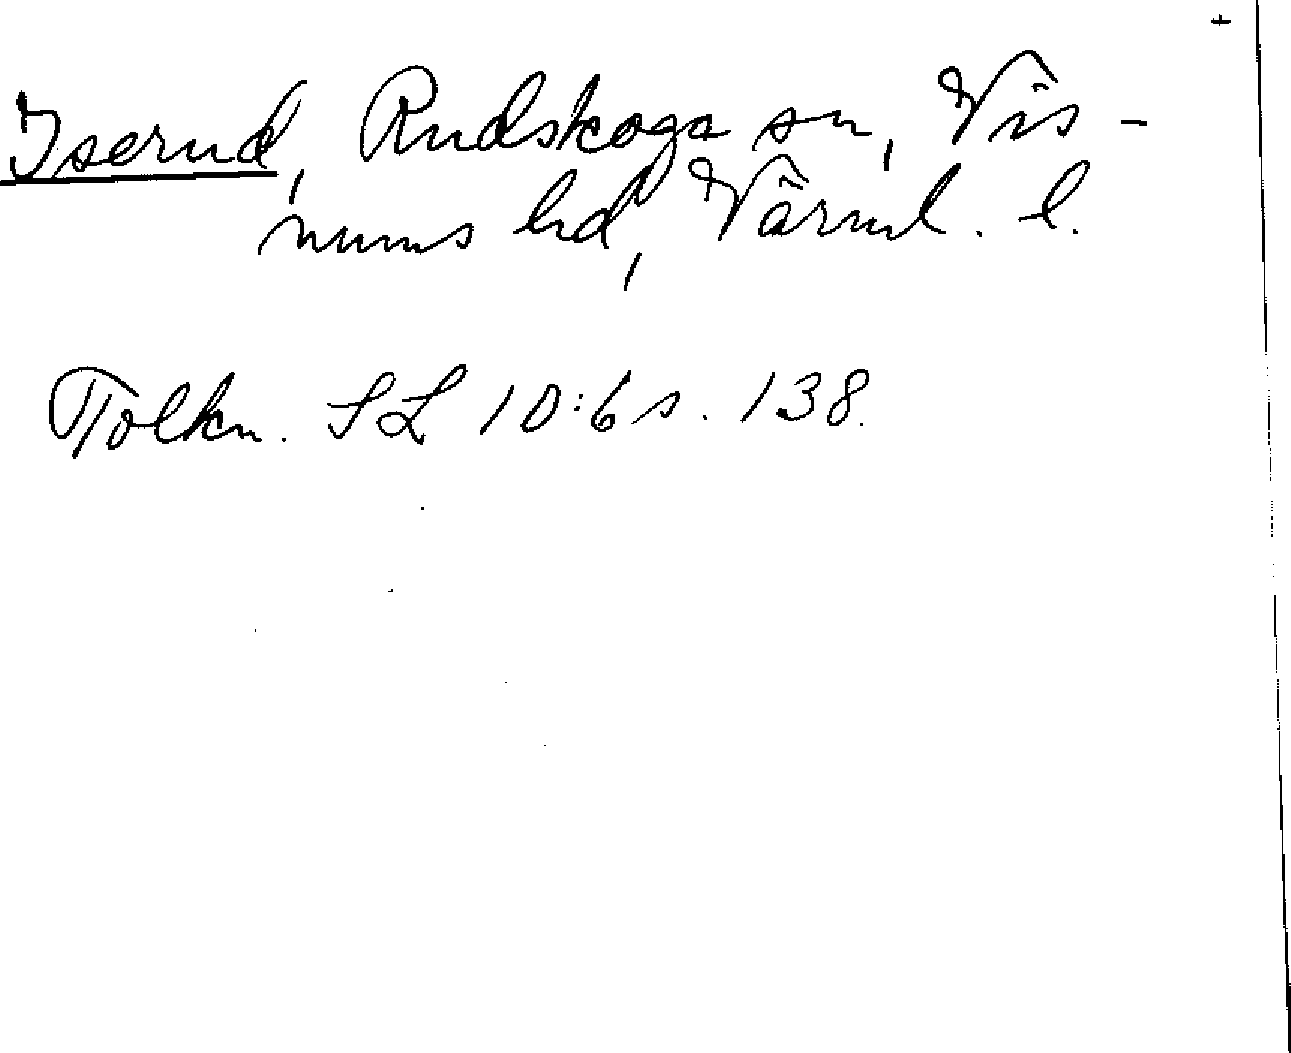 +
Iserud, Rudskoga sn, Vis-
nums hd, Värml. l.
Tolkn. SL 10:6 s. 138.